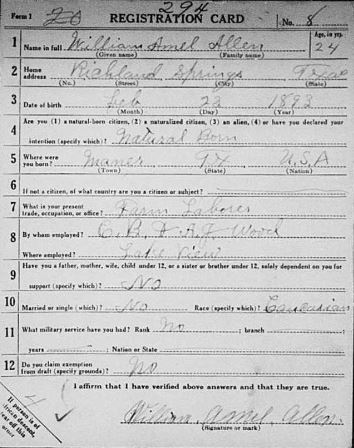 Form 1 20 294 REGISTRATION CARD No. 8
1 Name in full William Amel Allen Age, in yrs. 24
(Given name) (Family name)
2 Home address Richland Springs Texas
(No.) (Street) (City) (State)
3 Date of birth Feb 23 1893
(Month) (Day) (Year)
4 Are you (1) a natural-born citizen, (2) a naturalized citizen, (3) an alien, (4) or have you declared your
intention (specify which)? Natural Born
5 Where were you born? Maner TX U.S.A
(Town) (State) (Nation)
6 If not a citizen, of what country are you a citizen or subject?
7 What is your present trade, occupation, or office? Farm Laborer
8 By whom employed? Wood
Where employed? Lake View
9 Have you a father, mother, wife, child under 12, or a sister or brother under 12, solely dependent on you for
support (specify which)? No
10 Married or single (which)? No Race (specify which)? Caucasian
11 What military service have you had? Rank No ; branch ;
years ; Nation or State
12 Do you claim exemption from draft (specify grounds)? No
I affirm that I have verified above answers and that they are true.
William Amel Allen
(Signature or mark)
If person is of
African descent,
tear off this